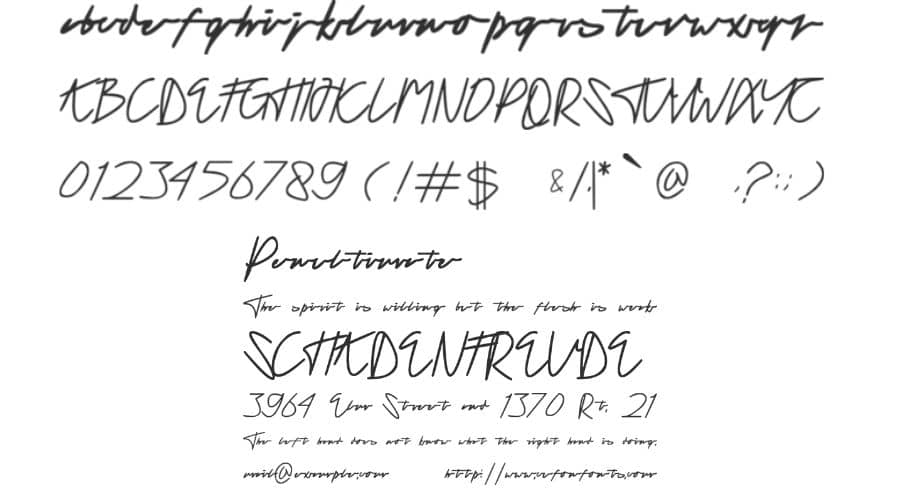 abcdefghijklmnopqrstuvwxyz
ABCDEFGHIJKLMNOPQRSTUVWXYZ
0123456789 (!#$ &/|* ` @ ,?:; )
Penultimate
The spirit is willing but the flesh is weak
SCHADENFREUDE
3964 Elm Street and 1370 Rt. 21
The left hand does not know what the right hand is doing.
mail@example.com http://www.fonts.com